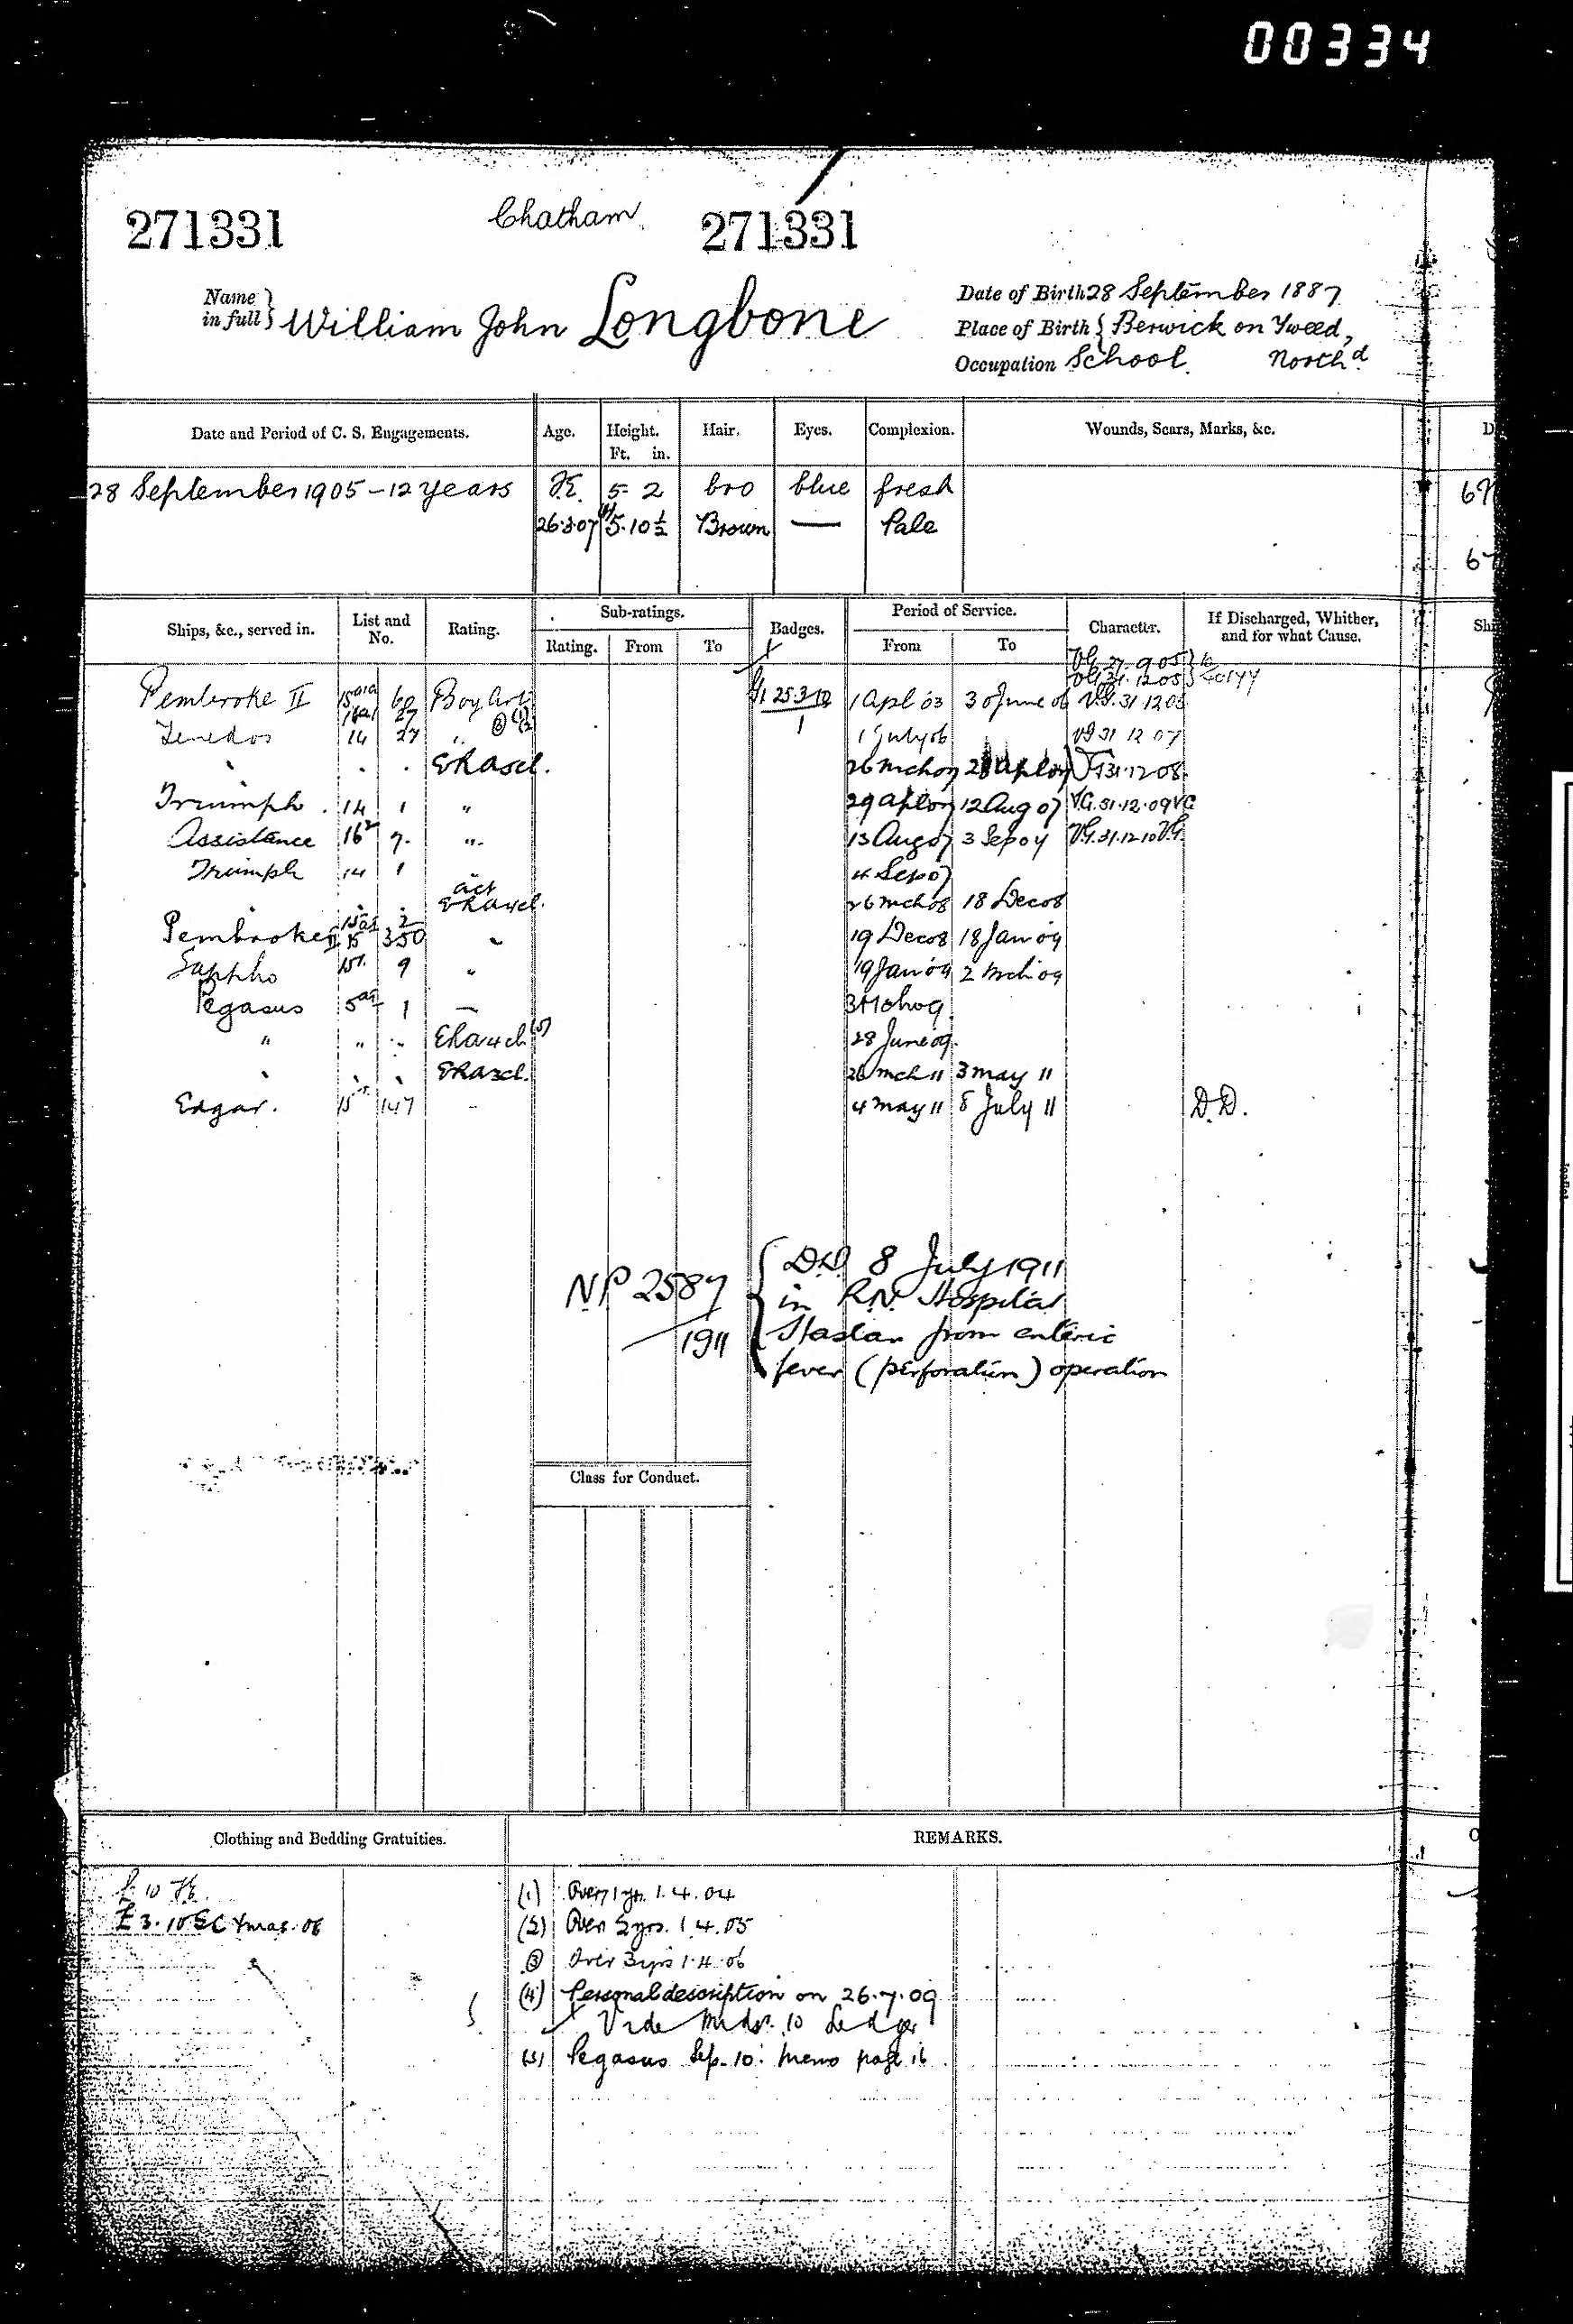 00334
271331 Chatham 271331
Name in full } William John Longbone
Date of Birth 28 September 1887
Place of Birth { Berwick on Tweed,
Occupation School. North d
Date and Period of C. S. Engagements. Age. Height. Ft. in. Hair. Eyes. Complexion. Wounds, Scars, Marks, &c.
28 September 1905 - 12 years 5- 2 bro blue fresh
26.3.07 (4) 5.10½ Brown — Pale
Ships, &c., served in. List and No. Rating. Sub-ratings. Badges. Period of Service. Character. If Discharged, Whither, and for what Cause.
Rating. From To From To
VG 27.9.05
VG 31.12.05
Pembroke II 60 Boy Art 1 Apl 03 30 June 06 VG.31.12.06
Tenedos 14 27 " 1 July 06 VG 31 12 07
ERA5cl. 26 Mch 07 28 Apl 07 31.12.08
Triumph 14 1 " 29 Apl 07 12 Aug 07 V.G.31.12.09 VG
Assistance 16² 7. " 13 Aug 07 3 Sep 07 V.G.31.12.10 VG.
Triumph 14 1 4 Sep 07
act ERA4cl. 26 Mch 08 18 Dec 08
Pembroke II 15 350 " 19 Dec 08 18 Jan 09
Sappho 15 9 " 19 Jan 09 2 Mch 09
Pegasus 5 1 — 3 Mch 09
" " " ERA4cl (5) 28 June 09.
ERA3cl. 26 Mch 11 3 May 11
Edgar. 15 147 - 4 May 11 8 July 11 D.D.
NP 2587 / 1911
{ D.D. 8 July 1911
in R.N. Hospital
Haslar from enteric
fever (perforation) operation
Class for Conduct.
Clothing and Bedding Gratuities. REMARKS.
£ 10
£ 3.10 Xmas. 06
(1) Over 1 yr. 1.4.04
(2) Over 2 yrs. 1.4.05
(3) Over 3 yrs 1.4.06
(4) Personal description on 26.7.09
Vide 10 Ledger
(5) Pegasus Sep. 10: Memo page 16